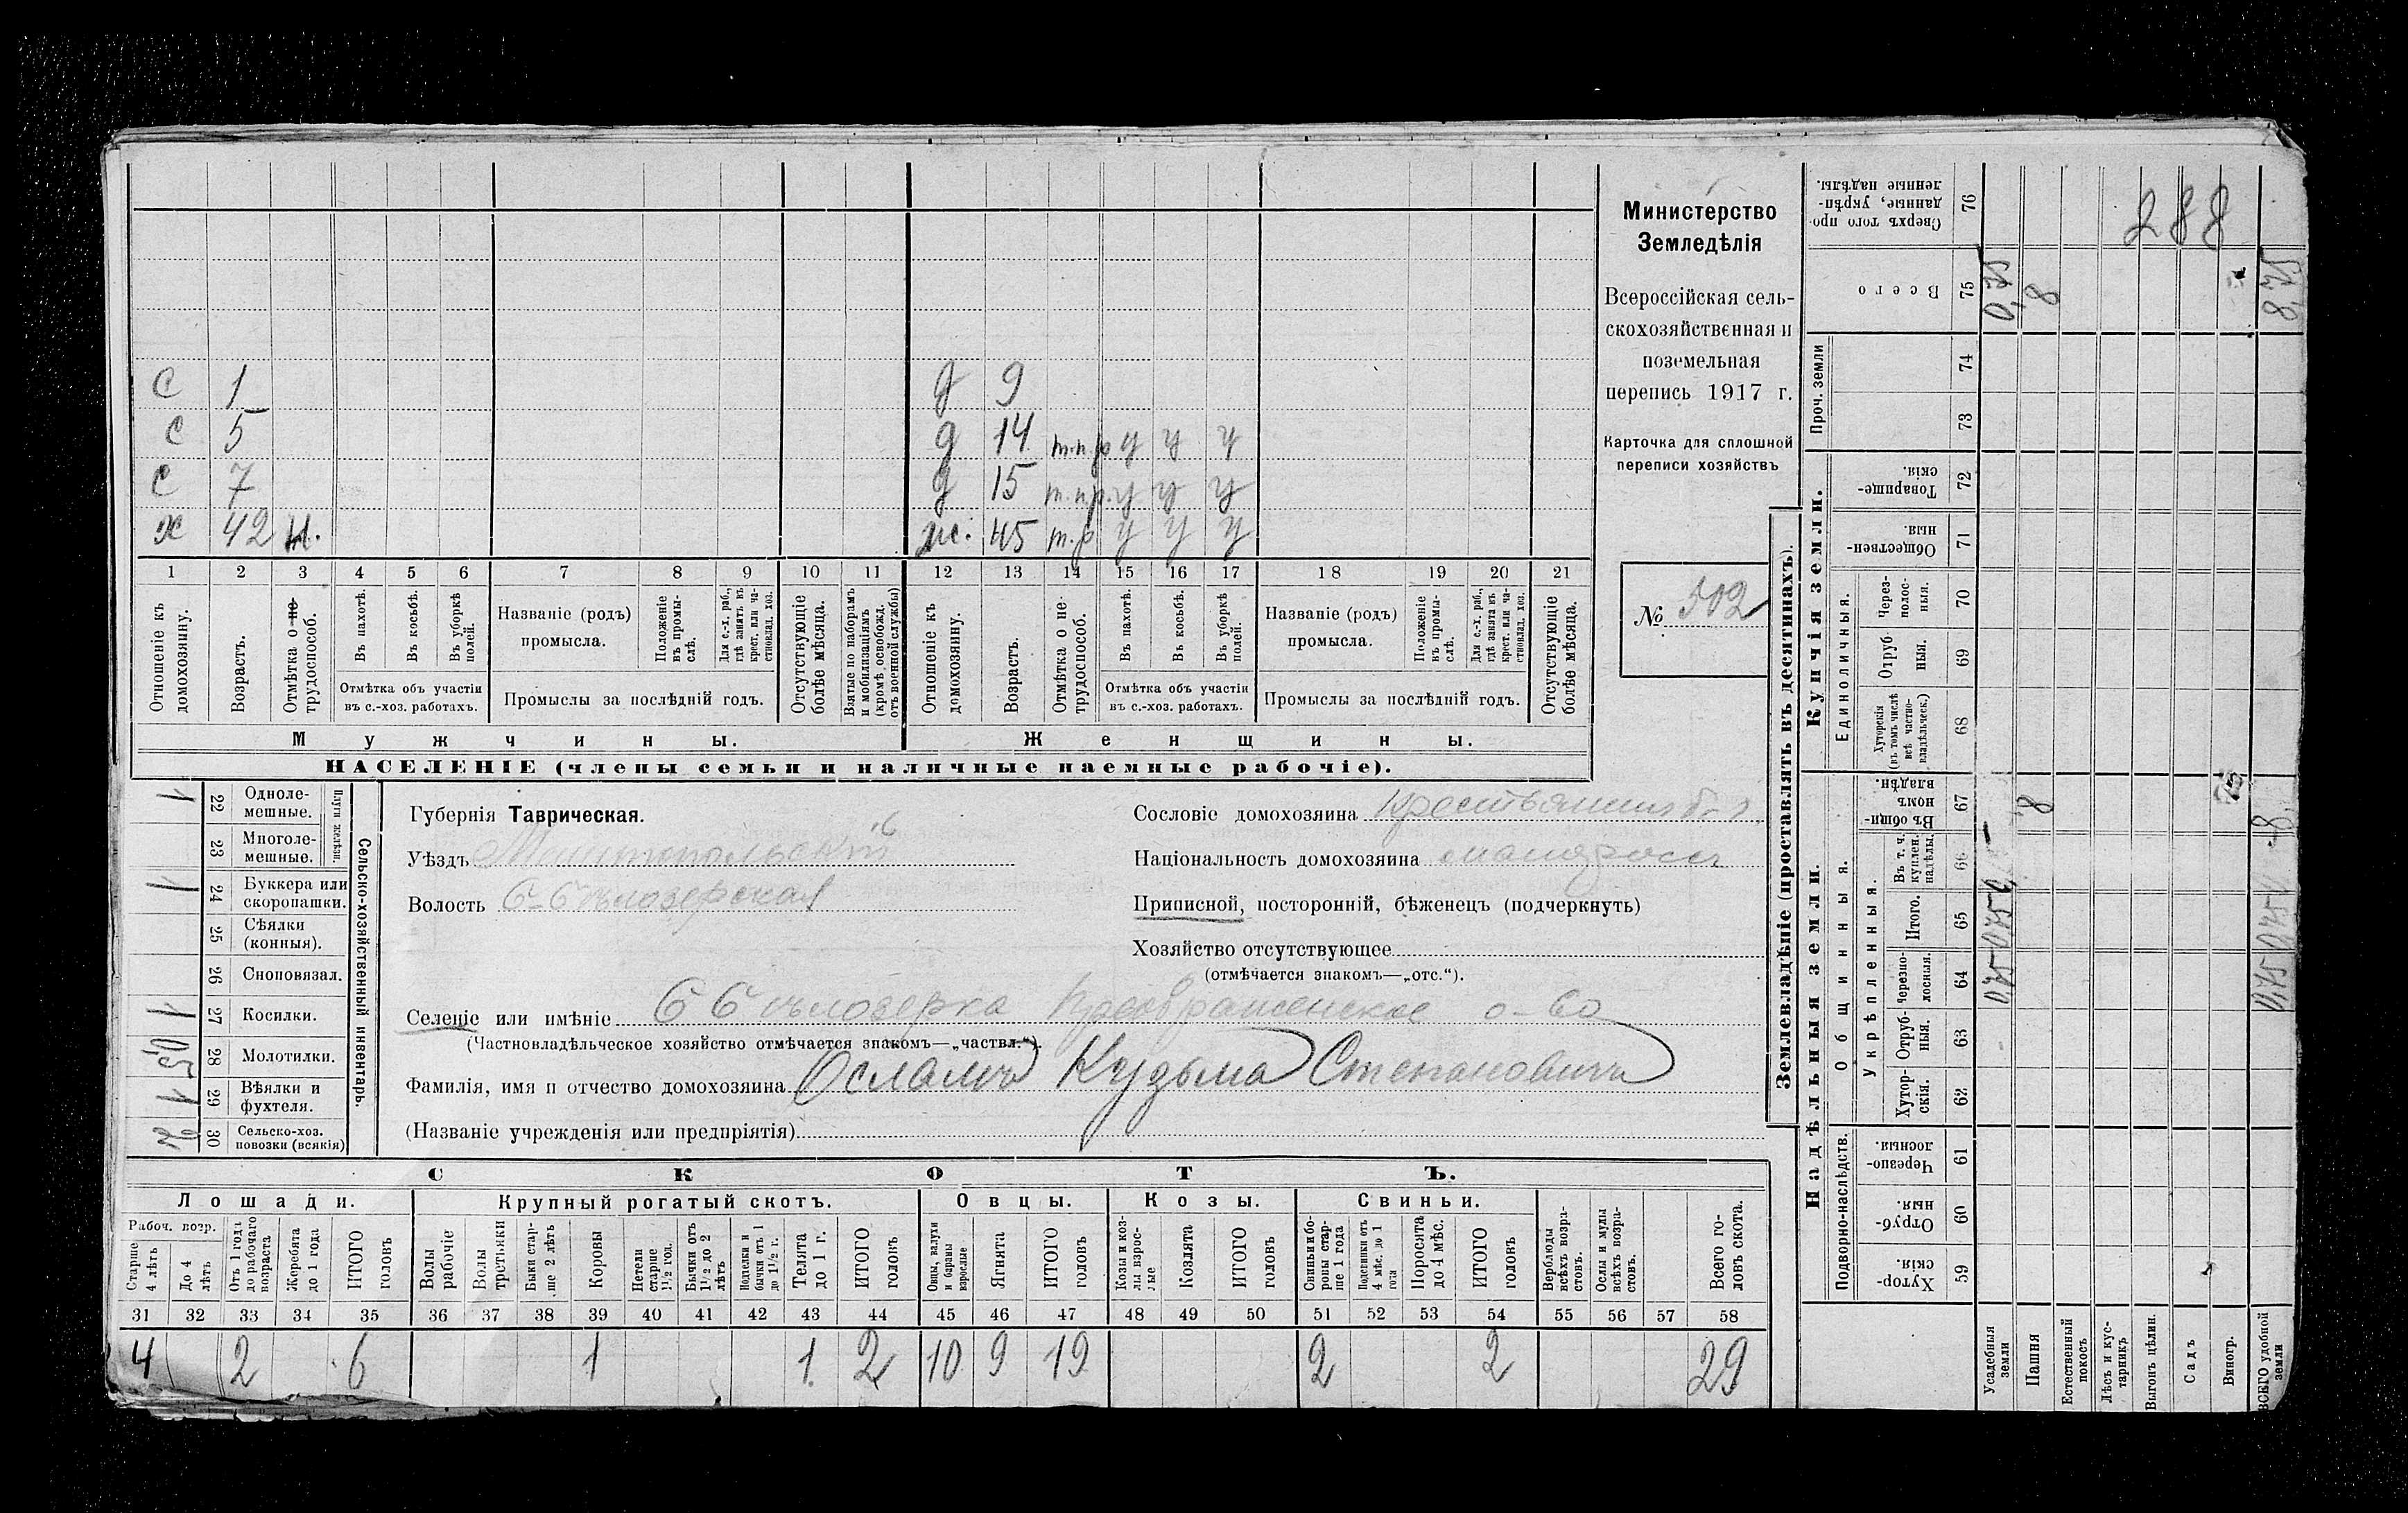 с 1
с 5
с 7
х 42 н.
д 9
д 14 т.п.р у у у
д 15 т.п.р. у у у
ж. 45 т.р у у у
1 2 3 4 5 6 7 8 9 10 11 12 13 14 15 16 17 18 19 20 21
Отношеніе къ домохозяину.
Возрастъ.
Отмѣтка о не-трудоспособ.
Въ пахотѣ.
Въ косьбѣ.
Въ уборкѣ полей.
Отмѣтка объ участіи въ с.-хоз. работахъ.
Названіе (родъ) промысла.
Положеніе въ промы-слѣ.
Для с.-х. раб., гдѣ занятъ въ крест. или ча-стновлад. хоз.
Промыслы за послѣдній годъ.
Отсутствующіе болѣе мѣсяца.
Взятые по наборамъ и мобилизаціямъ (кромѣ освобожд. отъ военной службы)
Отношеніе къ домохозяину.
Возрастъ.
Отмѣтка о не-трудоспособ.
Въ пахотѣ.
Въ косьбѣ.
Въ уборкѣ полей.
Отмѣтка объ участіи въ с.-хоз. работахъ.
Названіе (родъ) промысла.
Положеніе въ промы-слѣ.
Для с.-х. раб., гдѣ занята въ крест. или ча-стновлад. хоз.
Промыслы за послѣдній годъ.
Отсутствующіе болѣе мѣсяца.
Мужчины.
Женщины.
НАСЕЛЕНІЕ (члены семьи и наличные наемные рабочіе).
Министерство
Земледѣлія
Всероссійская сель-
скохозяйственная и
поземельная
перепись 1917 г.
Карточка для сплошной
переписи хозяйствъ
№ 502
Сельско-хозяйственный инвентарь.
Плуги желѣзн.
Одноле-мешные. 22 1
Многоле-мешные. 23
Буккера или скоропашки. 24 1
Сѣялки (конныя). 25
Сноповязал. 26
Косилки. 27 1
Молотилки. 28 0,5
Вѣялки и фухтеля. 29 1
Сельско-хоз. повозки (всякія) 30 2
Губернія Таврическая.
Уѣздъ Мелитопольскій
Волость Б-Бѣлозерская
Сословіе домохозяина
Національность домохозяина малоросс
Приписной, посторонній, бѣженецъ (подчеркнуть)
Хозяйство отсутствующее
(отмѣчается знакомъ—„отс.“).
Селеніе или имѣніе Б Бѣлозерка Преображенское о-во
(Частновладѣльческое хозяйство отмѣчается знакомъ—„частвл.“).
Фамилія, имя и отчество домохозяина Осламъ Кузьма Степановичъ
(Названіе учрежденія или предпріятія)
СКОТЪ.
Лошади.
Крупный рогатый скотъ.
Овцы.
Козы.
Свиньи.
Рабоч. возр.
Старше 4 лѣтъ
До 4 лѣтъ
Отъ 1 года до рабочаго возраста
Жеребята до 1 года
ИТОГО головъ
Волы рабочіе
Волы третьяки
Быки стар-ше 2 лѣтъ
Коровы
Нетели старше 1½ год.
Бычки отъ 1½ до 2 лѣтъ
Подтелки и бычки отъ 1 до 1½ г.
Телята до 1 г.
ИТОГО головъ
Овцы, валухи и бараны взрослые
Ягнята
ИТОГО головъ
Козы и коз-лы взрос-лые
Козлята
ИТОГО головъ
Свиньи и бо-ровы стар-ше 1 года
Подсвинки отъ 4 мѣс. до 1 года
Поросята до 4 мѣс.
ИТОГО головъ
Верблюды всѣхъ возра-стовъ.
Ослы и мулы всѣхъ возра-стовъ.
Всего го-ловъ скота.
31 32 33 34 35 36 37 38 39 40 41 42 43 44 45 46 47 48 49 50 51 52 53 54 55 56 57 58
4 2 6 1 1 2 10 9 19 2 2 29
Землевладѣніе (проставлять въ десятинахъ).
Надѣльныя земли.
Купчія земли.
Проч. земли
Подворно-наслѣдств.
Общинныя.
Укрѣпленныя.
Единоличныя.
Сверхъ того про-данные, укрѣп-ленные надѣлы. 76
288
Всего 75 0,75 8 8,75
74
73
Товарище-скія. 72
Обществен-ныя. 71
Через-полос-ныя. 70
Отруб-ныя. 69
Хуторскія (въ томъ числѣ всѣ частно-владѣльческ.) 68
Въ общи-номъ владѣн. 67 8 8
Въ т. ч. куплен. надѣлы. 66
Итого. 65 0,75 0,75
Черезпо-лосныя. 64 0,75 0,75
Отруб-ныя. 63
Хутор-скія. 62
Черезпо-лосныя. 61
Отруб-ныя. 60
Хутор-скія. 59
Усадебныя земли
Пашня
Естественный покосъ
Лѣсъ и кус-тарникъ
Выгонъ цѣлин.
Садъ
Виногр.
ВСЕГО удобной земли